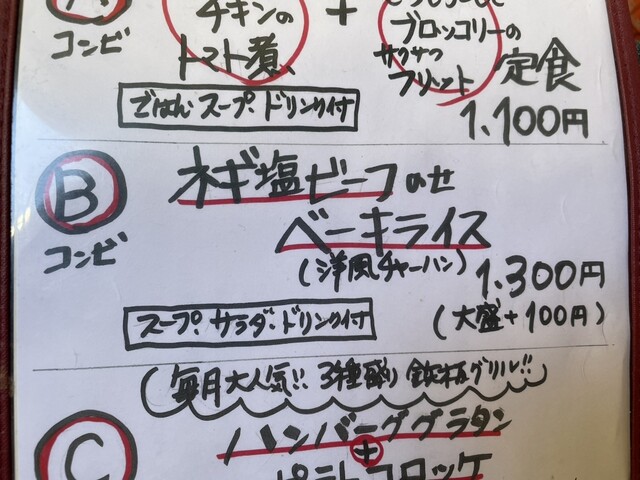 チキンの
トマト煮
+
ブロッコリーの
サクサク
フリット
定食
コンビ
ごはん スープ・ドリンク付
1,100円
B
コンビ
ネギ塩ビーフのせ
ベーキライス
(洋風チャーハン)
1,300円
スープ・サラダ・ドリンク付
(大盛+100円)
(毎月大人気!! 3種盛り 鉄板グリル!!)
C
ハンバーググラタン
+
ポテトコロッケ